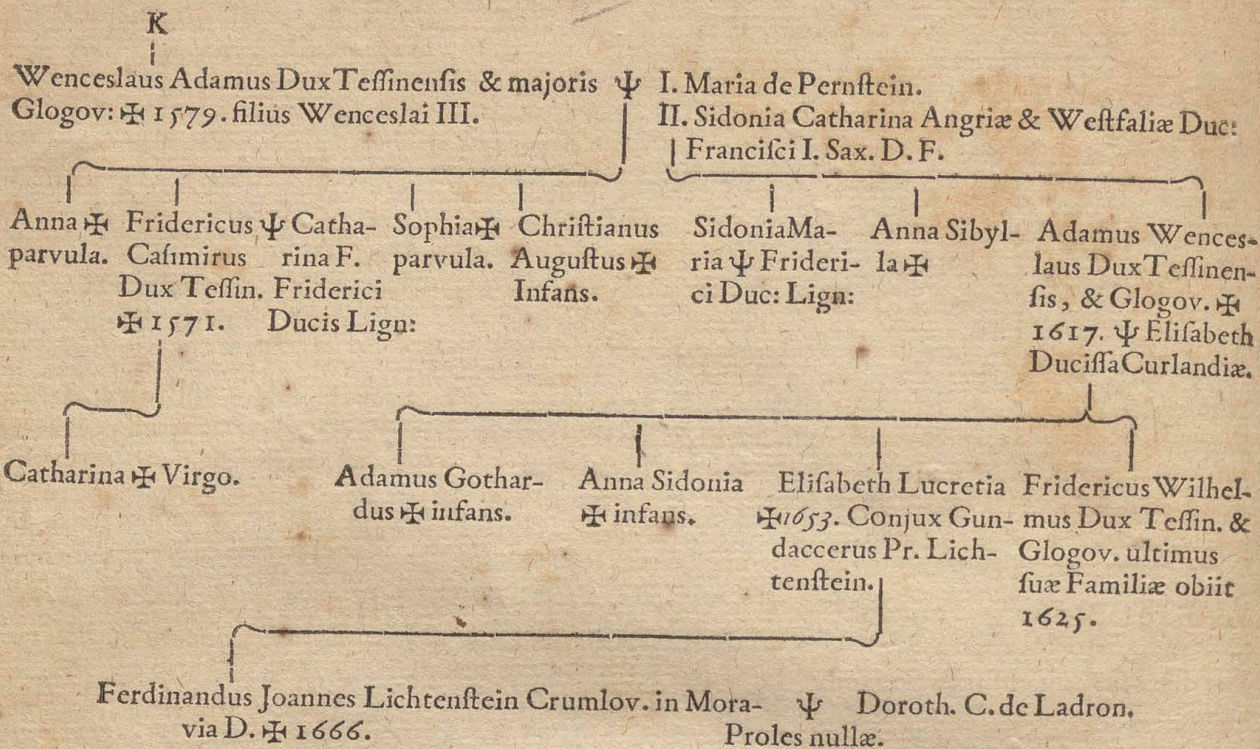 K
Wenceslaus Adamus Dux Teſſinenſis & majoris Ψ I. Maria de Pernſtein.
Glogov: ✠ 1579. filius Wenceslai III.
II. Sidonia Catharina Angriæ & Weſtfaliæ Duc:
Franciſci I. Sax. D. F.
Anna ✠
parvula.
Fridericus Ψ Catha-
Caſimirus rina F.
Dux Teſſin. Friderici
✠ 1571. Ducis Lign:
Sophia ✠
parvula.
Chriſtianus
Auguſtus ✠
Infans.
Sidonia Ma-
ria Ψ Frideri-
ci Duc: Lign:
Anna Sibyl-
la ✠
Adamus Wences-
laus Dux Teſſinen-
ſis, & Glogov. ✠
1617. Ψ Eliſabeth
Duciſſa Curlandiæ.
Catharina ✠ Virgo.
Adamus Gothar-
dus ✠ infans.
Anna Sidonia
✠ infans.
Eliſabeth Lucretia
✠ 1653. Conjux Gun-
daccerus Pr. Lich-
tenſtein.
Fridericus Wilhel-
mus Dux Teſſin. &
Glogov. ultimus
ſuæ Familiæ obiit
1625.
Ferdinandus Joannes Lichtenſtein Crumlov. in Mora- Ψ Doroth. C. de Ladron.
via D. ✠ 1666. Proles nullæ.